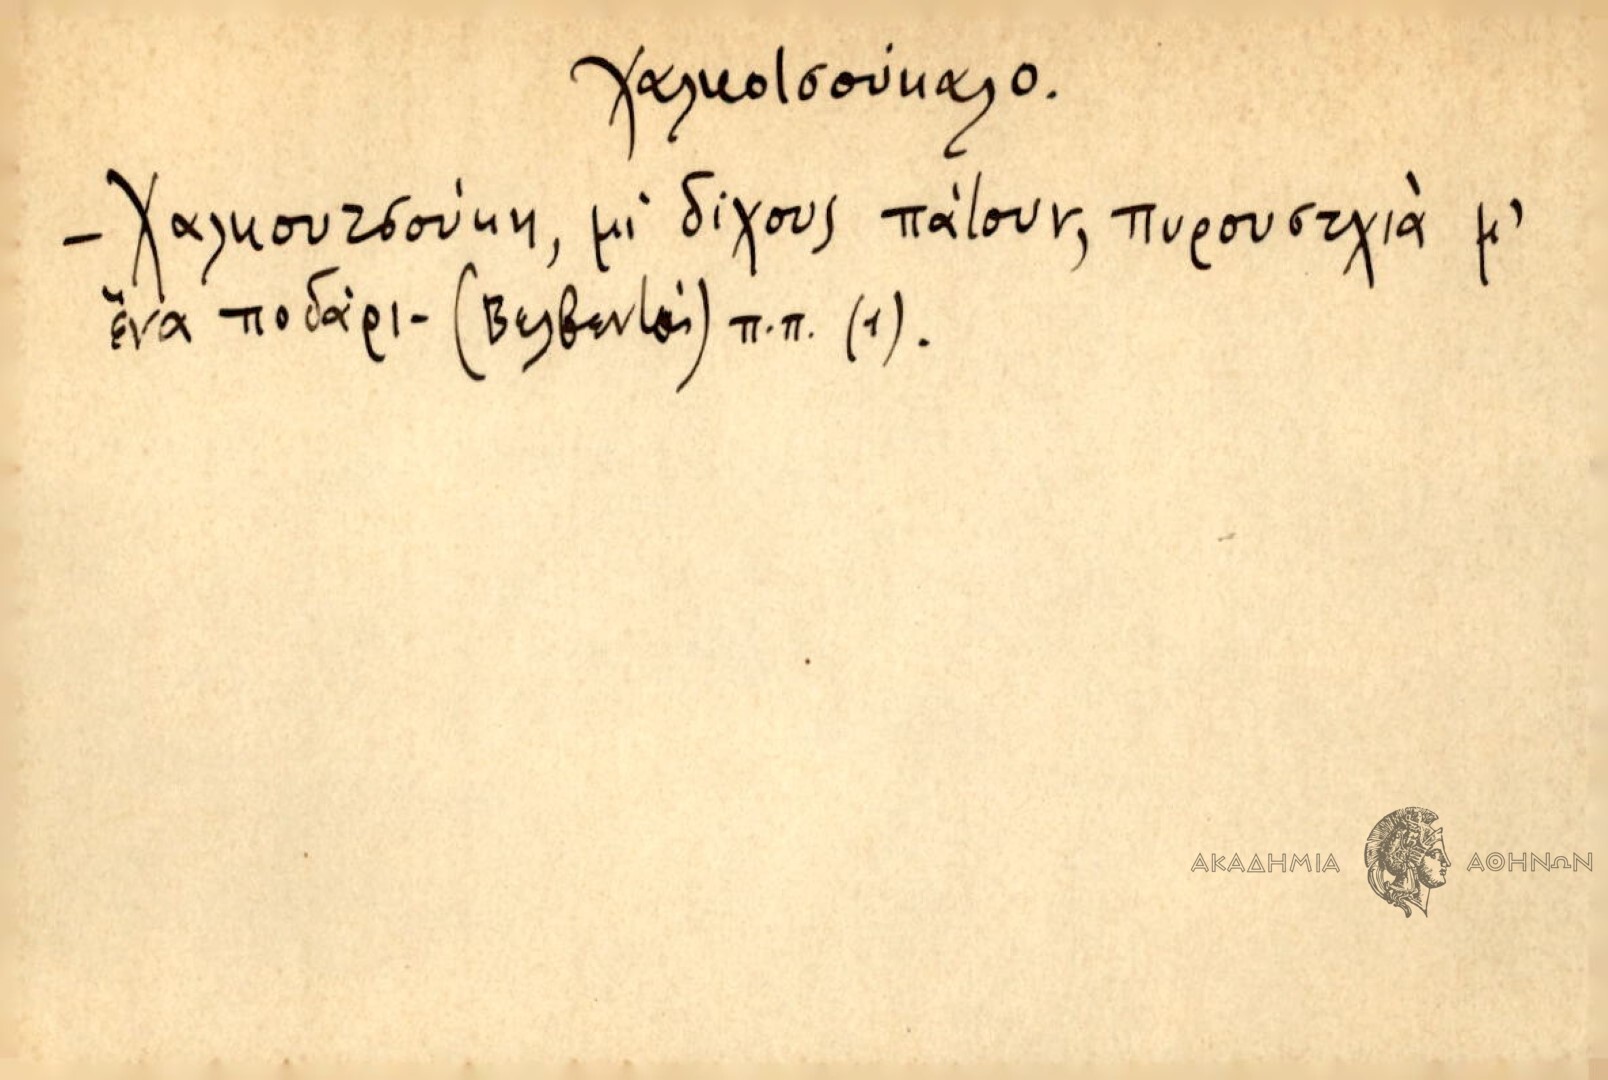 Χαλκοτσούκαλο.
- Χαλκουτσούκη, μὶ δίχους πάτουν, πυρουστχιὰ μ'
ἕνα ποδάρι - (Βελβεντὸ) π.π. (1).
ΑΚΑΔΗΜΙΑ ΑΘΗΝΩΝ